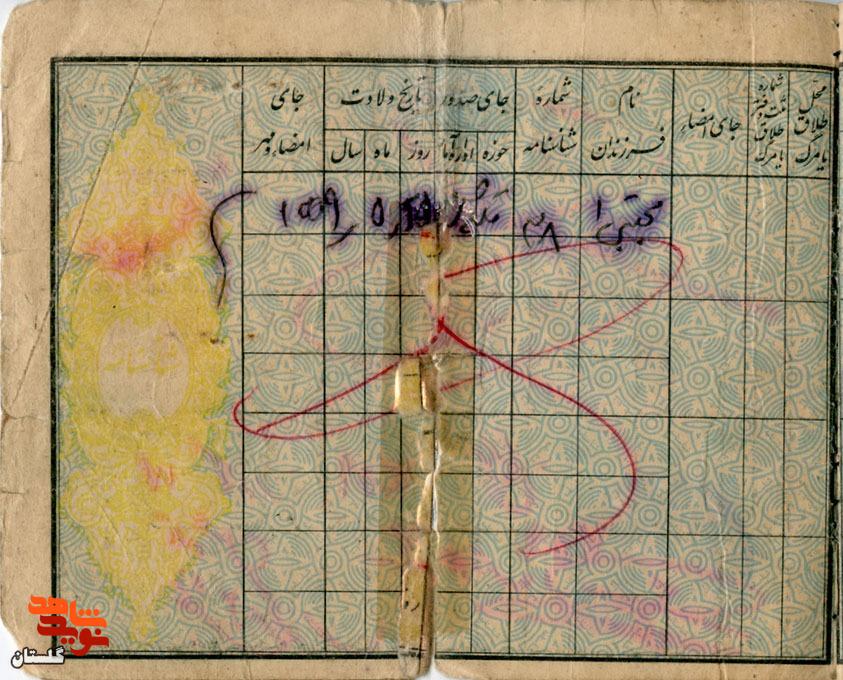 محل طلاق یا مرگ
شماره ثبت دفتر طلاق یا مرگ
جای امضاء
نام فرزندان
شمارهٔ شناسنامه
جای صدور
حوزه
اداره آمار
تاریخ ولادت
روز
ماه
سال
جای امضاء و مهر
مجتبی ۳۸
شناسنامه
شاهد
نوید
گلستان